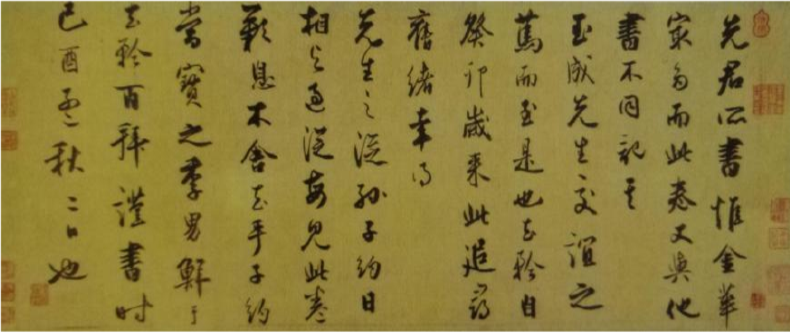 先君所書惟金華
家多而此卷又與他
書不同記其
玉成先生交誼之
篤而至是也去矜自
癸卯歲來此追尋
舊緒幸得
先生之從孫子約日
相與過從每見此卷
歎息不舍去手子約
當寶之季男鮮于
去矜百拜謹書時
己酉孟秋二日也